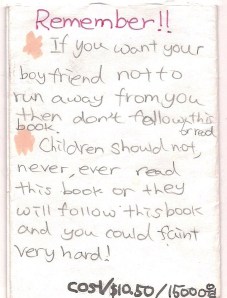 Remember!!
If you want your
boyfriend not to
run away from you
then don't follow this
book. or read
Children should not,
never, ever read
this book or they
will follow this book
and you could faint
very hard!
cost/$10.50/15000원